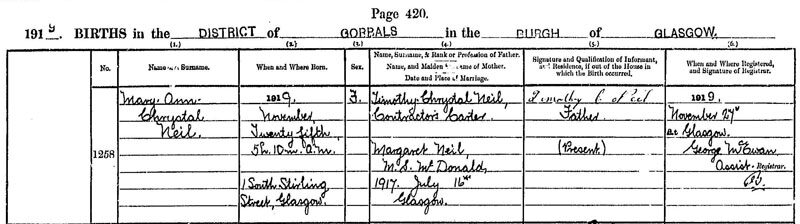 Page 420.
1919. BIRTHS in the DISTRICT of GORBALS in the BURGH of GLASGOW.
(1.) (2.) (3.) (4.) (5.) (6.)
No.
Name and Surname.
When and Where Born.
Sex.
Name, Surname, & Rank or Profession of Father.
Name, and Maiden Name of Mother.
Date and Place of Marriage.
Signature and Qualification of Informant,
and Residence, if out of the House in
which the Birth occurred.
When and Where Registered,
and Signature of Registrar.
1258
Mary Ann
Chrystal
Neil.
1919.
November,
Twenty fifth,
5h. 10m. a.m.
1 South Stirling
Street, Glasgow.
F.
Timothy Chrystal Neil,
Contractor's Carter,
Margaret Neil,
M.S. McDonald,
1917. July 16th
Glasgow.
Timothy C Neil
Father
(Present)
1919.
November 27th
at Glasgow.
George McEwan
Assist. Registrar.